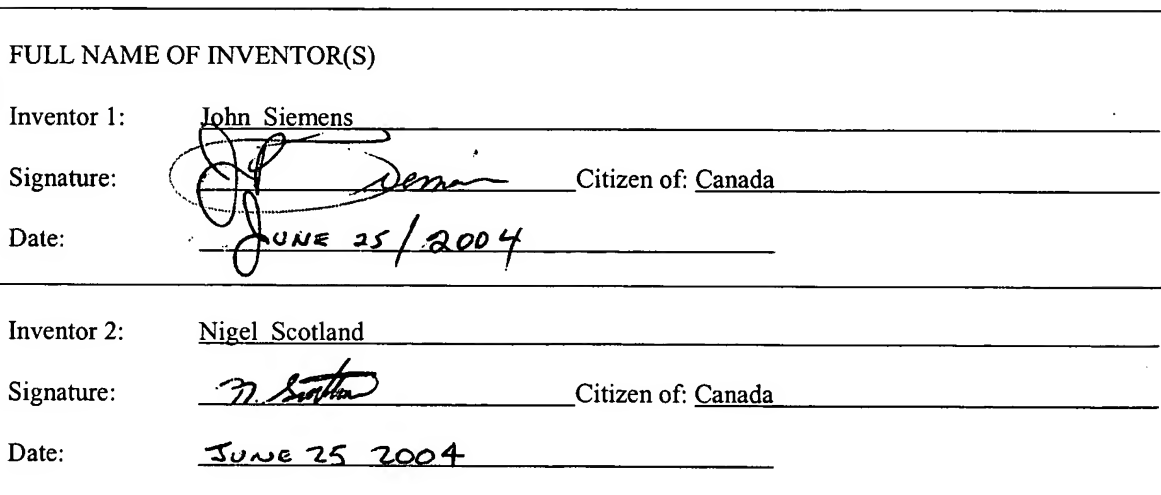 FULL NAME OF INVENTOR(S)
Inventor 1: John Siemens
Signature: Citizen of: Canada
Date: JUNE 25/2004
Inventor 2: Nigel Scotland
Signature: N. Scotland Citizen of: Canada
Date: JUNE 25 2004